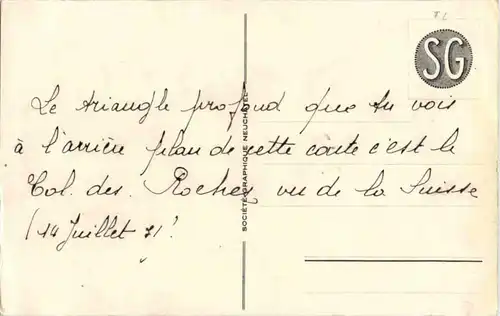 TL
SG
Le triangle profond que tu vois
à l'arrière plan de cette carte c'est le
Col. des. Roches vu de la Suisse
(14 Juillet 71!
SOCIÉTÉ GRAPHIQUE NEUCHATEL